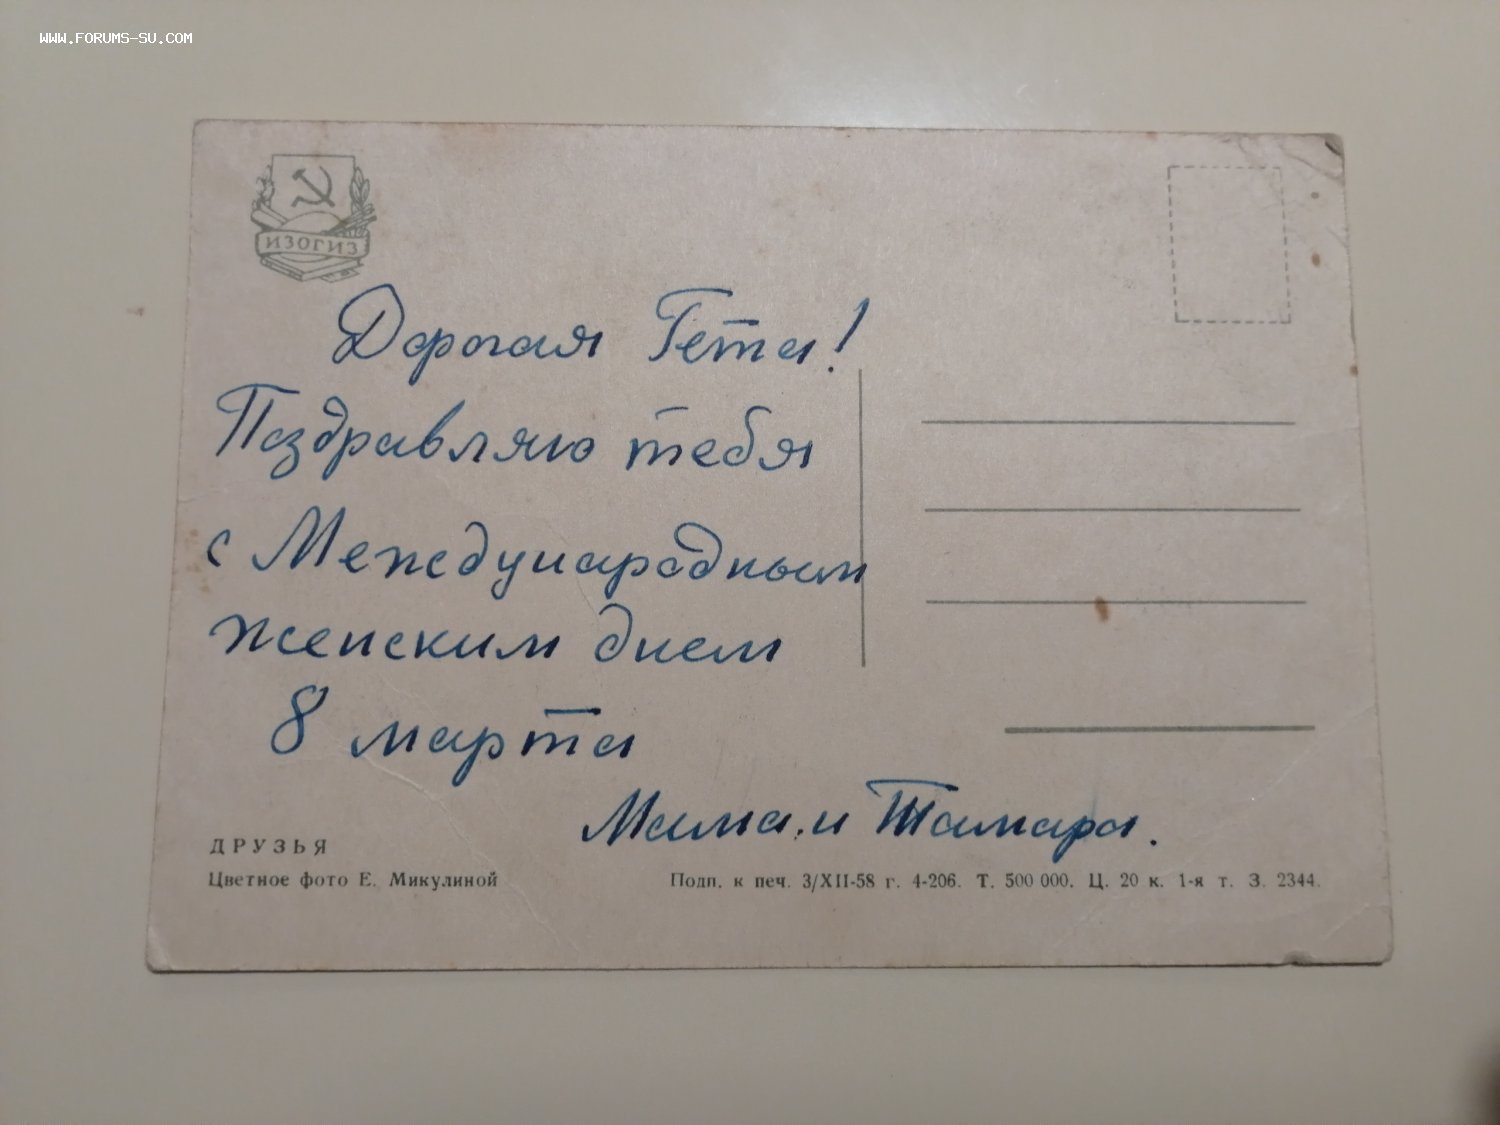 WWW.FORUMS-SU.COM
ИЗОГИЗ
Дорогая Гета!
Поздравляю тебя
с Международным
женским днем
8 марта
Мама и Тамара.
ДРУЗЬЯ
Цветное фото Е. Микулиной
Подп. к печ. 3/XII-58 г. 4-206. Т. 500 000. Ц. 20 к. 1-я т. З. 2344.